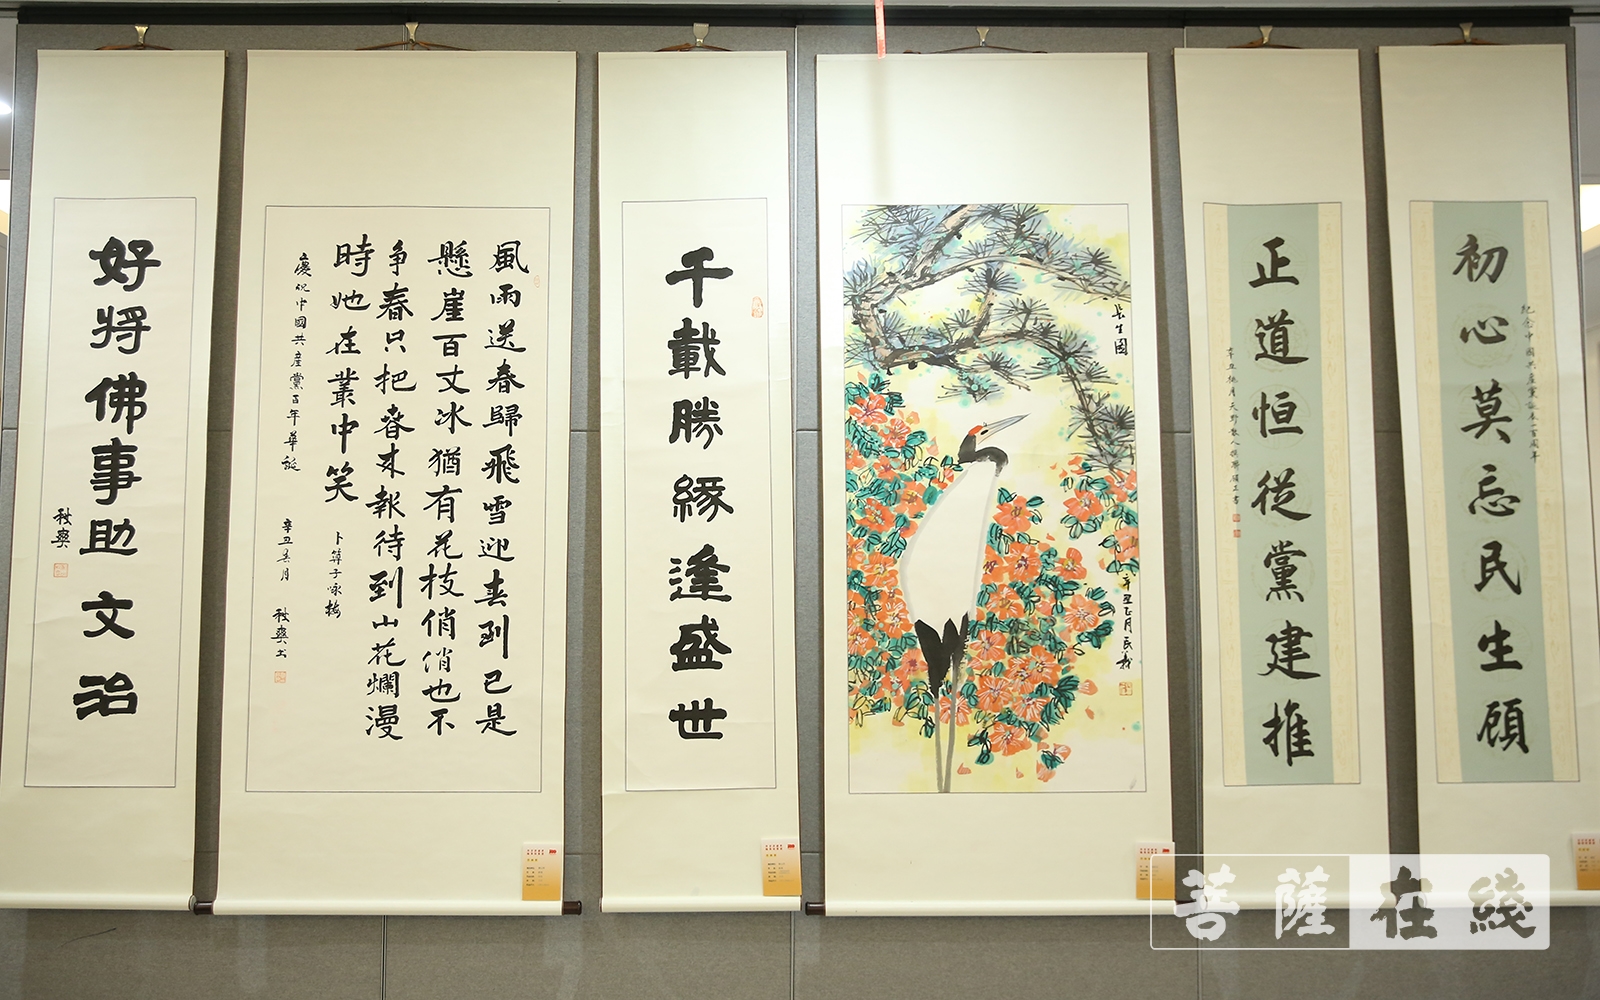 初心莫忘民生顾
紀念中國共産黨誕辰一百周年
正道恒從黨建推
長生圖
辛丑正月民義
千載勝緣逢盛世
風雨送春歸飛雪迎春到已是
懸崖百丈冰猶有花枝俏俏也不
争春只把春来報待到山花爛漫
時她在叢中笑
卜算子咏梅
慶祝中國共産黨百年華誕
辛丑春月
秋爽书
好將佛事助文治
秋爽
菩薩在线